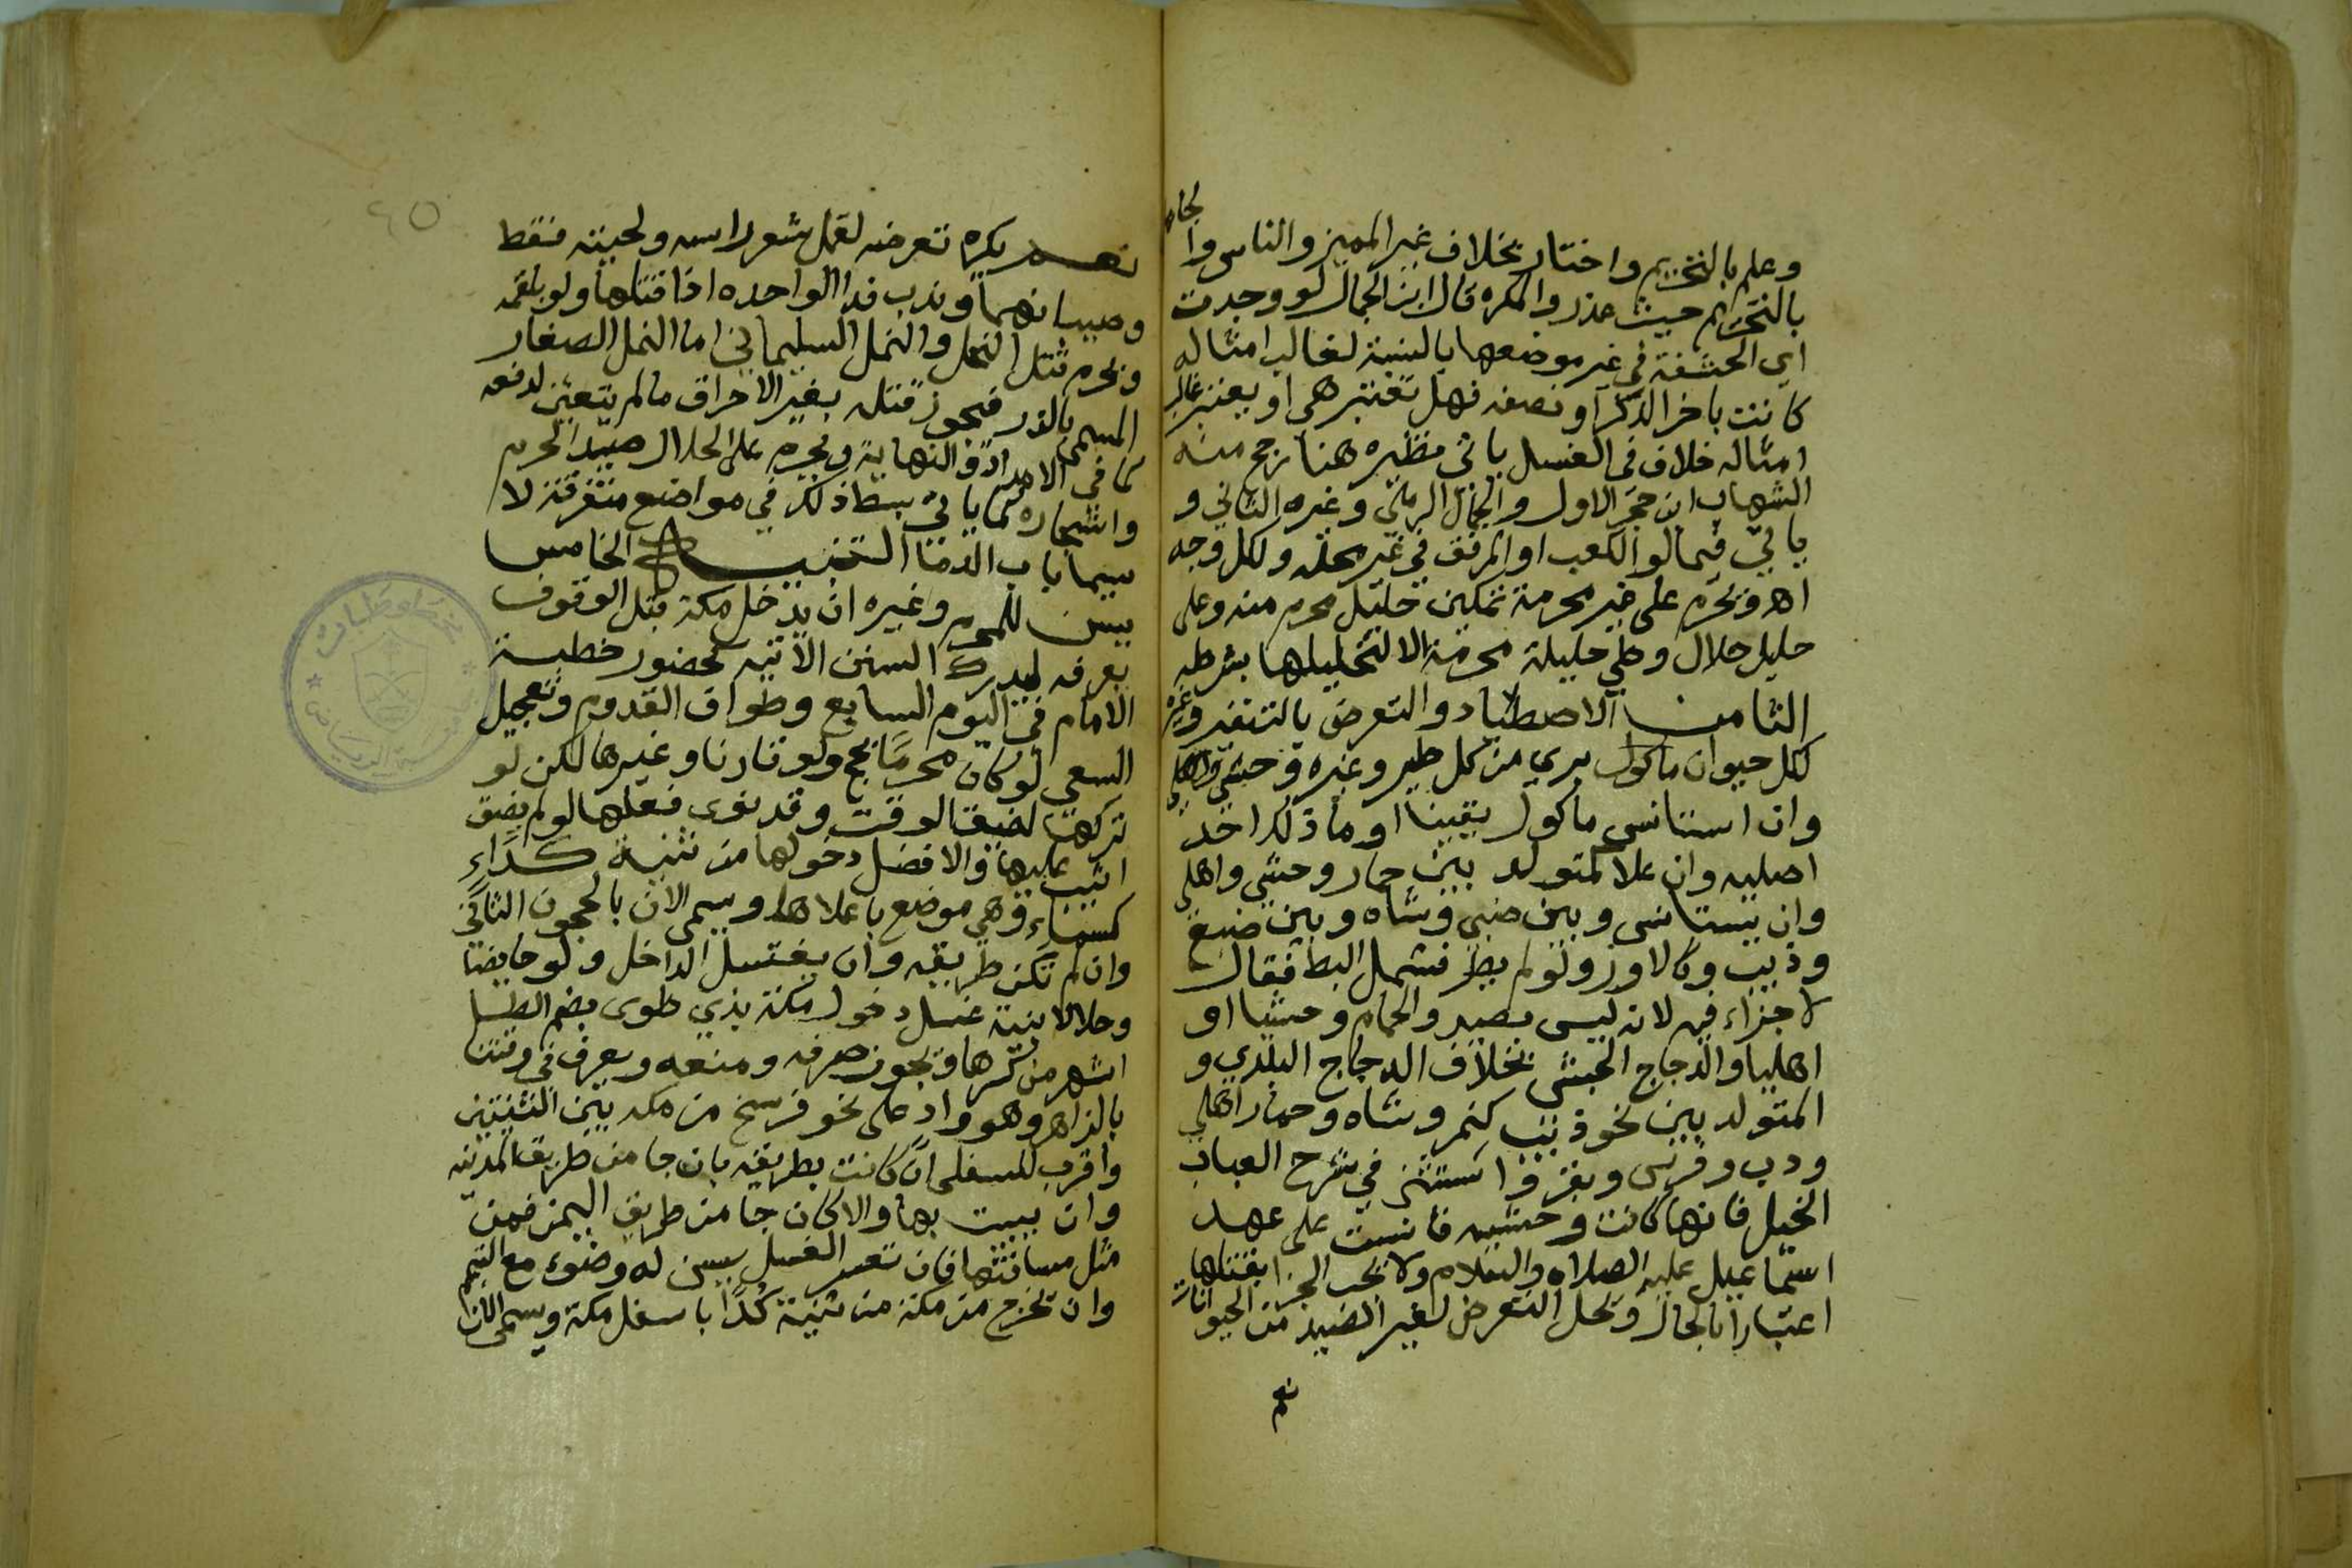 وعلم بالتحريم واختار بخلاف غير المميز والناس والجاهل
بالتحريم حيث عذر والمكره قال ابن الجمال لو وجدت
اي الحشفة في غير موضعها بالنسبة لغالب امثاله
كانت باخر الذكر او نصفه فهل تعتبر هي او يعتبر غالب
امثاله خلاف في الغسل ياتي نظيره هنا رجح منه
الشهاب ابن حجر الاول والجمال الرملي وغيره الثاني و
ياتي فيما لو الكعب او المرفق في غير محله ولكل وجه
اه ويحرم على غير محرمة تمكين حليل محرم منه وعلى
حليل حلال وطي حليلة محرمة الا لتحليلها بشرطه
الثامن الاصطياد والتعرض بالتنفير وغيره
لكل حيوان ماكول بري من كل طير وغيره وحشي
وان استانس ماكول يقينا او ما ذكر احد
اصليه وان علا كمتولد بين حمار وحشي واهلي
وان يستانس وبين ضبي وشاه وبين ضبع
وذيب وكالاوز ولو لم يطر فشمل البط فقال
لا جزاء فيه لانه ليس بصيد والحمام وحشيا او
اهليا والدجاج الحبشي بخلاف الدجاج البلدي و
المتولد بين نحو ذيب كنمر وشاه وحمار اهلي
ودب وفرس وبقر واستثنى في شرح العباب
الخيل فانها كانت وحشيه فانست على عهد
اسماعيل عليه الصلاه والسلام ولا يجب الجزا بقتلها
اعتبارا بالحال ويحل التعرض لغير الصيد من الحيوانات
نعم
٤٥
نعم يكره تعرضه لقمل شعر راسه ولحيته فقط
وصيبانهما وندب فدا الواحده اذا قتلها ولو بلقمه
ويحرم قتل النحل والنمل السليماني اما النمل الصغار
المسمى بالذر فيجوز قتله بغير الاحراق ما لم يتعين لدفعه
كما في الامداد والنهاية ويحرم على الحلال صيد الحرم
واشجاره كما ياتي بسط ذلك في مواضع متفرقة لا
سيما باب الدما التنبيه الخامس
يسن للمحرم وغيره ان يدخل مكة قبل الوقوف
بعرفه ليدرك السنن الاتيه كحضور خطبة
الامام في اليوم السابع وطواف القدوم وتعجيل
السعي لو كان محرما بحج ولو قارنا وغيرها لكن لو
تركها لضيق الوقت وقد نوى فعلها لو لم يضق
اثيب عليها والافضل دخولها من ثنية كداء
كسماء وهي موضع باعلاها ويسمى الان بالحجون الثاني
وان لم تكن طريقه وان يغتسل الداخل ولو حايضا
وحلالا بنية غسل دخول مكة بذي طوى بضم الطا
اشهر من كسرها ويجوز صرفه ومنعه ويعرف في وقتنا
بالزاهر وهو واد على نحو فرسخ من مكه بين الثنيتين
واقرب للسفلى ان كانت بطريقه بان جا من طريق المدينه
وان يبيت بها والا كان جا من طريق اليمن فمن
مثل مسافتها فان تعسر الغسل يسن له وضوء مع التيمم
وان تخرج من مكة من ثنية كدا باسفل مكة ويسمى الان